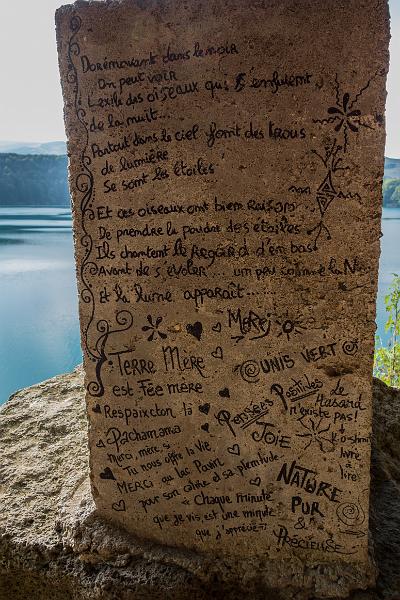 Dorénavant dans le noir
On peut voir
L'exile des oiseaux qui s'enfuient
de la nuit...
Partout dans le ciel font des trous
de lumière
Se sont les étoiles
Et ces oiseaux ont bien raison
De prendre la poudre des étoiles
Ils chantent le Regard d'en bas
Avant de s'évoler... un peu comme la
Et la lume apparaît...
Merci
Terre Mère
est Fée mère
Respaixcton la
Pachamama
Merci, mère,
Tu nous offre la Vie
MERCI au Lac Pavin
pour son calme et sa plenitude
Chaque minute
que je vis, est une minute
que j'apprécie
UNIS VERT
Pensées Positives
JOIE
Le Hasard
n'existe pas!
livre
à
lire
NATURE
PUR
&
Précieuse